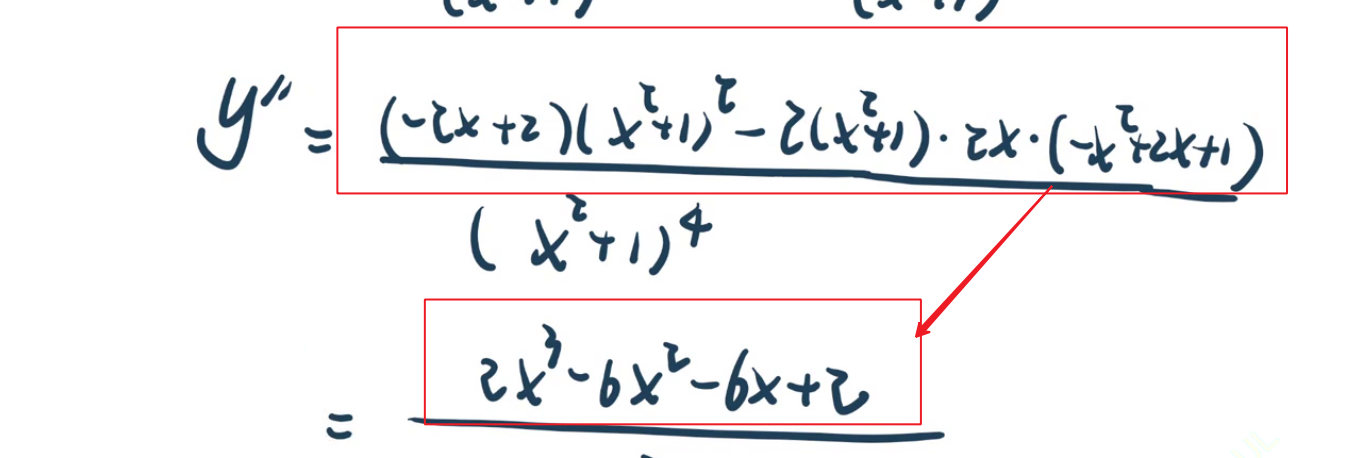 y″ = (-2x+2)(x²+1)² - 2(x²+1)·2x·(-x²+2x+1)
(x²+1)⁴
= 2x³-6x²-6x+2